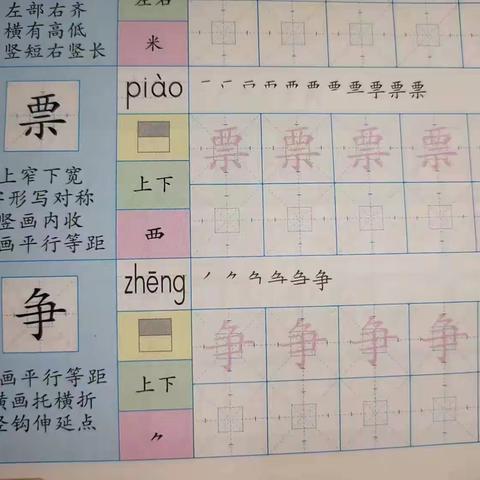 左部右齐
横有高低
竖短右竖长
左右
米
票
上窄下宽
字形写对称
竖画内收
画平行等距
piào
上下
覀
一 𠂉 襾 覀 覀 票 票 票
票 票 票 票
争
画平行等距
横画托横折
竖钩伸延点
zhēng
上下
⺈
争
争 争 争 争